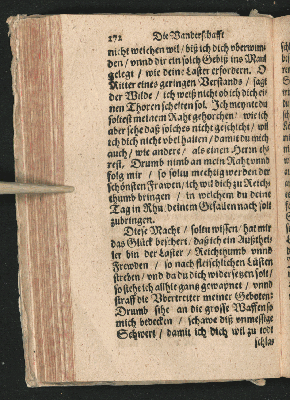 172 Die Wanderschafft
nicht weichen wil / biß ich dich vberwun⸗
den / vnnd dir ein solch Gebiß ins Maul
gelegt / wie deine Laster erfordern. O
Ritter eines geringen Verstands / sagt
der Wilde / ich weiß nicht ob ich dich ei⸗
nen Thoren schelten sol. Ich meynte du
soltest meinem Raht gehorchen / wie ich
aber sehe daß solches nicht geschicht / wil
ich dich nicht vbel halten / damit du mich
auch / wie andere / als einen Herrn eh⸗
rest. Drumb nimb an mein Raht vnnd
folg mir / so soltu mechtig werden der
schönsten Frawen / ich wil dich zu Reich⸗
thumb bringen / in welchem du deine
Tag in Rhu deinem Gefallen nach solt
zubringen.
Diese Macht / soltu wissen / hat mir
das Glück beschert / daß ich ein Außthei⸗
ler bin der Laster / Reichthumb vnnd
Frewden / so nach fleischlichen Lüsten
streben / vnd da du dich widersetzen solt /
so stehe ich allhie gantz gewapnet / vnnd
straff die Vbertreter meiner Gebot⸗
Drumb sihe an die grosse Waffen so
mich bedecken / schawe diß vnmessige
Schwert / damit ich dich wil zu todt
schlas